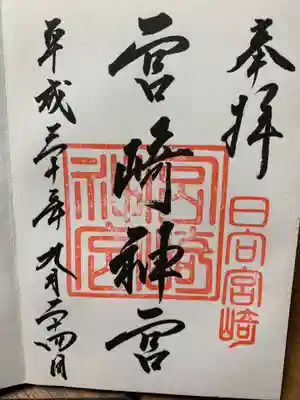 奉拝
日向宮崎
宮崎神宮
宮崎神宮
平成三十年九月二十四日